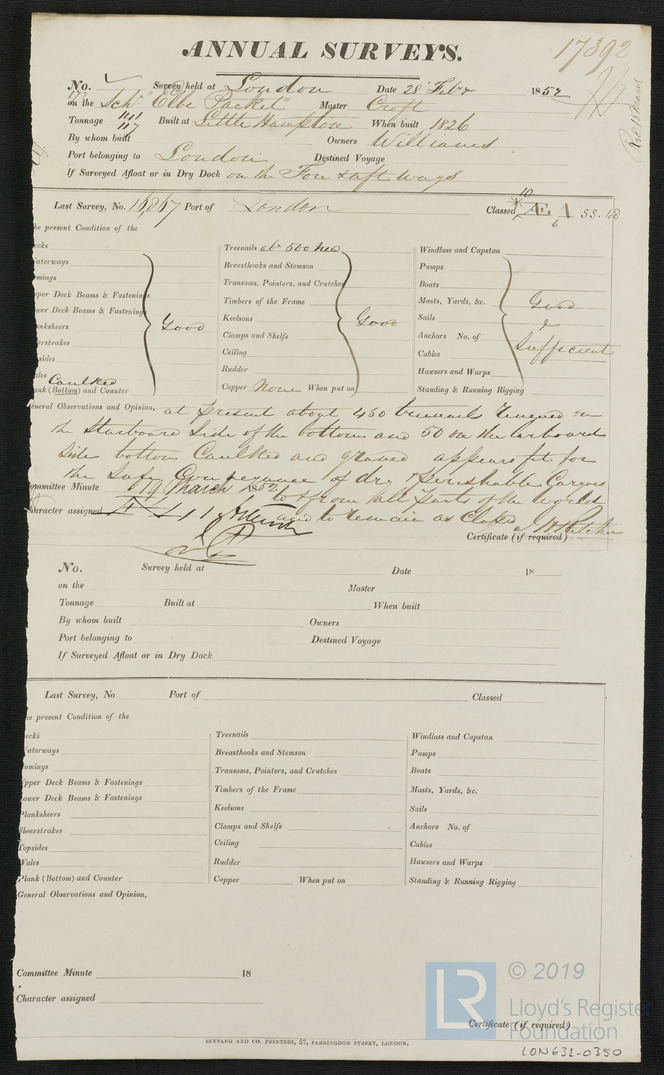 ANNUAL SURVEYS.
17392
No. Survey held at London Date 28 Feby 1852
on the Sch "Elbe Packet" Master Croft
Tonnage 117 Built at Little Hampton When built 1826
By whom built Owners Williams
Port belonging to London Destined Voyage
If Surveyed Afloat or in Dry Dock on the Fore & aft ways
Last Survey, No. 16,867 Port of London Classed Æ A SS.
he present Condition of the
ecks
aterways
omings
pper Deck Beams & Fastenings
ower Deck Beams & Fastenings
anksheers
eerstrakes
sides
ales Caulked
ank (Bottom) and Counter
Good
Treenails abt 500 new
Breasthooks and Stemson
Transoms, Pointers, and Crutches
Timbers of the Frame
Keelsons
Clamps and Shelfs
Ceiling
Rudder
Copper None When put on
Good
Windlass and Capstan
Pumps
Boats
Masts, Yards, &c.
Sails
Anchors No. of
Cables
Hawsers and Warps
Standing & Running Rigging
Good
&
Sufficient
eneral Observations and Opinion, at present about 450 treenails renewed in
the Starboard Side of the bottom and 50 on the larboard
side bottom Caulked and graved appears fit for
the Safe Conveyance of dry & perishable Cargoes
to & from all parts of the World
and to remain as Classed
ommittee Minute 19 March 1852
haracter assigned
Certificate (if required)
No. Survey held at Date 18
on the Master
Tonnage Built at When built
By whom built Owners
Port belonging to Destined Voyage
If Surveyed Afloat or in Dry Dock
Last Survey, No Port of Classed
he present Condition of the
ecks
aterways
omings
pper Deck Beams & Fastenings
ower Deck Beams & Fastenings
Planksheers
Sheerstrakes
Topsides
Wales
Plank (Bottom) and Counter
Treenails
Breasthooks and Stemson
Transoms, Pointers, and Crutches
Timbers of the Frame
Keelsons
Clamps and Shelfs
Ceiling
Rudder
Copper When put on
Windlass and Capstan
Pumps
Boats
Masts, Yards, &c.
Sails
Anchors No. of
Cables
Hawsers and Warps
Standing & Running Rigging
General Observations and Opinion,
Committee Minute 18
Character assigned
Certificate (if required)
SEYFANG AND CO. PRINTERS, 57, FARRINGDON STREET, LONDON.
LR
© 2019
Lloyd's Register
Foundation
LON631-0350